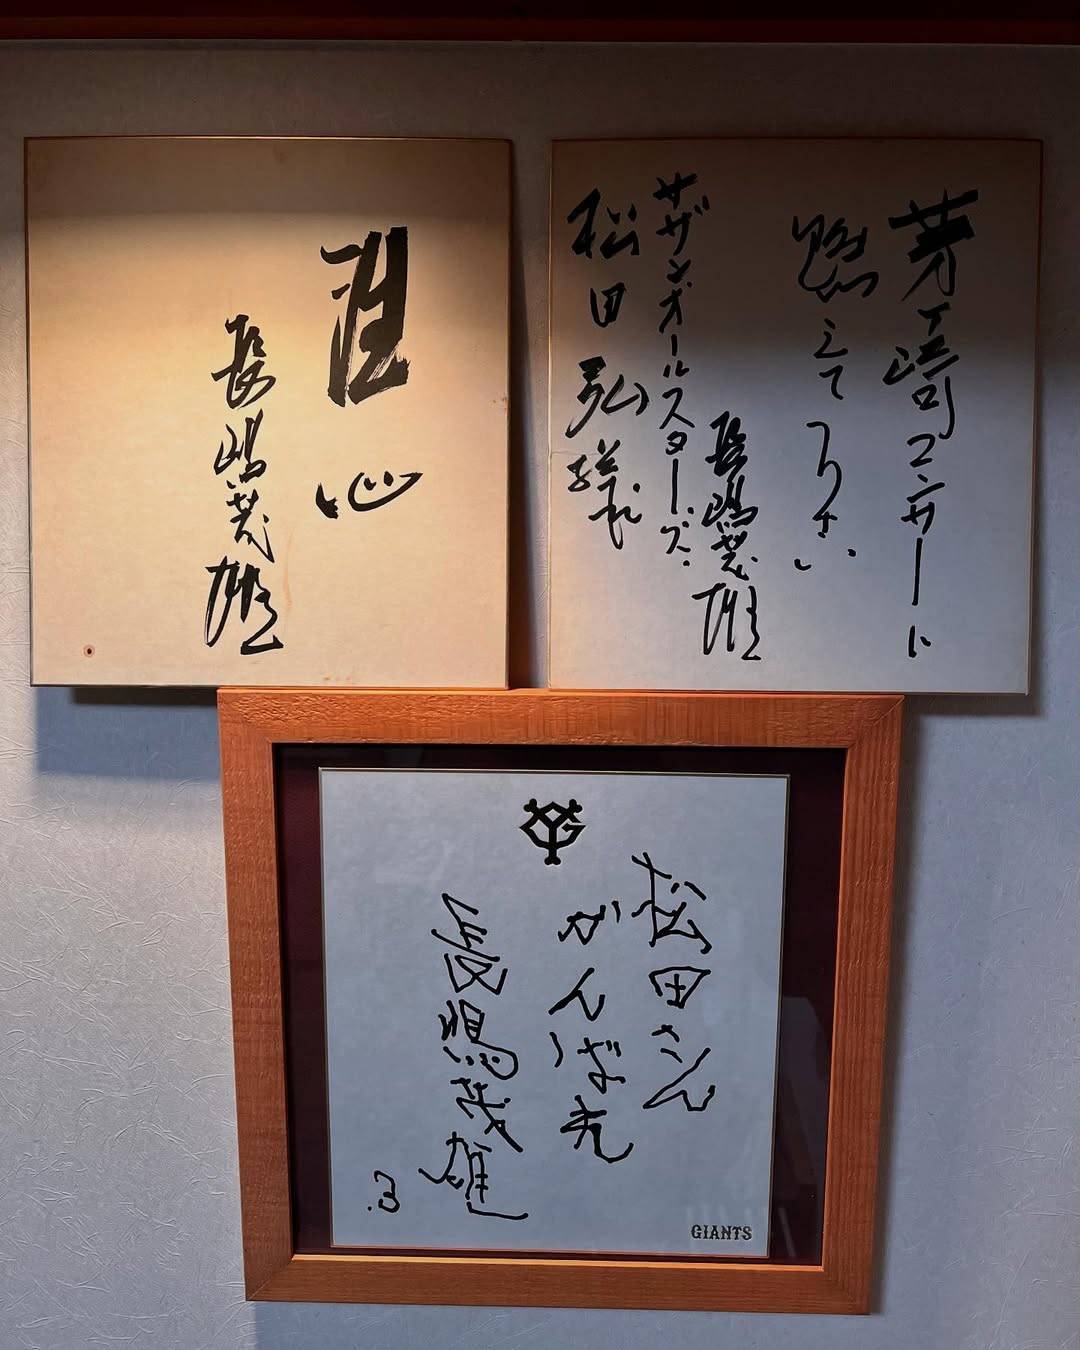 心
長嶋茂雄
茅ケ崎コンサートに
燃えて下さい
長嶋茂雄
サザンオールスターズ
松田弘様
YG
松田さん
がんばれ
長嶋茂雄
3
GIANTS